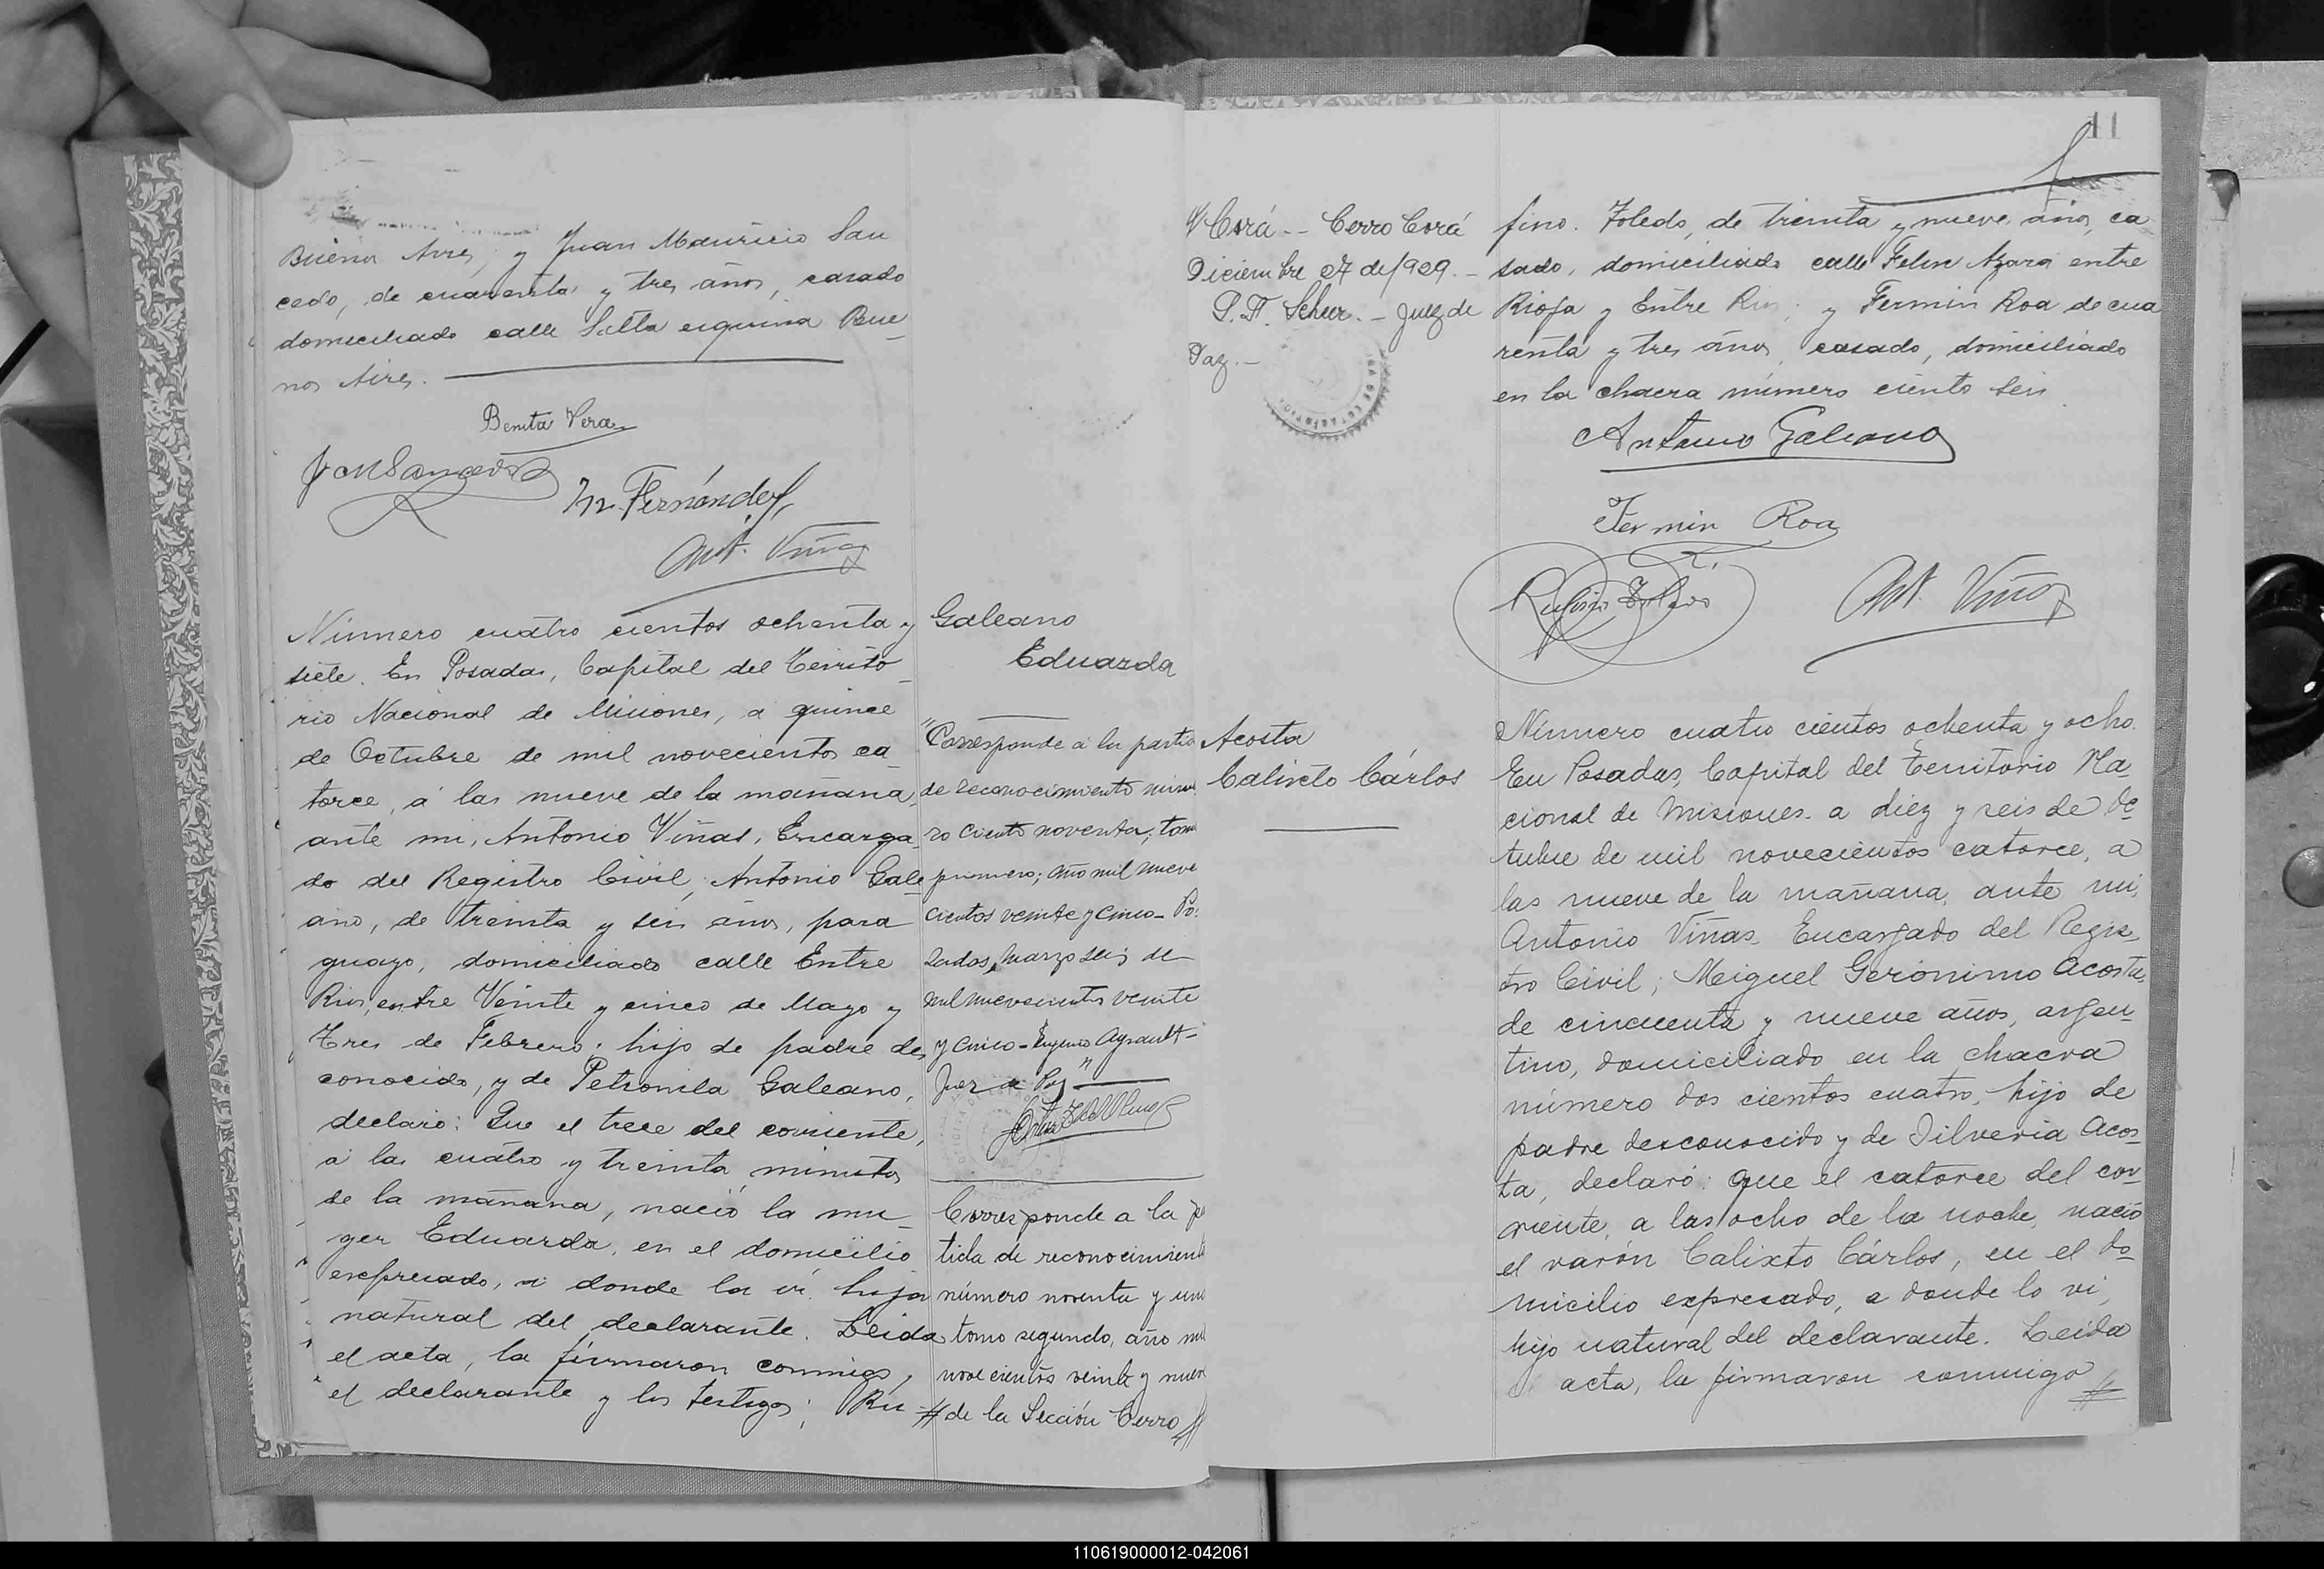 Buenos Aires, y Juan Mauricio Sau
cedo, de cuarenta y tres años, casado
domiciliado calle Salta esquina Bue
nos Aires.
Benita Vera
M. Fernández
Ant. Viñas
Número cuatro cientos ochenta y
siete. En Posadas, Capital del Territo
rio Nacional de Misiones, a quince
de Octubre de mil novecientos ca
torce, á las nueve de la mañana,
ante mi, Antonio Viñas, Encarga
do del Registro Civil, Antonio Gale
ano, de treinta y seis años, para
guayo, domiciliado calle Entre
Rios, entre Veinte y cinco de Mayo y
Tres de Febrero, hijo de padre des
conocido, y de Petronila Galeano,
declaró: Que el trece del corriente,
á las cuatro y treinta minutos
de la mañana, nació la mu
ger Eduarda, en el domicilio
expresado, a donde la ví, hija
natural del declarante. Leida
el acta, la firmaron conmigo,
el declarante y los testigos; Ru
Galeano
Eduarda
"Corresponde a la partid
de reconocimiento núme
ro ciento noventa, tomo
primero; año mil nueve
cientos veinte y cinco - Po
sadas, Marzo seis de
mil nuevecientos veinte
y cinco - Eugenio Ayrault -
Juez de Paz"
Corresponde a la par
tida de reconocimiento
número noventa y uno
tomo segundo, año mil
novecientos veinte y nueve
# de la Sección Cerro //
11
// Corá -- Cerro Corá
Diciembre 27 de 1929. -
Juez de
Paz. -
fino Toledo, de treinta y nueve años, ca
sado, domiciliado calle Felix Azara entre
Rioja y Entre Rios; y Fermin Roa de cua
renta y tres años, casado, domiciliado
en la chacra número ciento seis
Antonio Galeano
Fermin Roa
Rufino Toledo
Ant. Viñas
Acosta
Calixto Cárlos
Número cuatro cientos ochenta y ocho.
En Posadas, Capital del Territorio Na
cional de Misiones, a diez y seis de Oc
tubre de mil novecientos catorce, a
las nueve de la mañana, ante mi,
Antonio Viñas, Encargado del Regis
tro Civil; Miguel Gerónimo Acosta,
de cincuenta y nueve años, argen
tino, domiciliado en la chacra
número dos cientos cuatro, hijo de
padre desconocido y de Silveria Acos
ta, declaró: que el catorce del cor
riente, a las ocho de la noche, nació
el varón Calixto Cárlos, en el do
micilio expresado, a donde lo vi,
hijo natural del declarante. Leida
el acta, la firmaron conmigo #
110619000012-042061